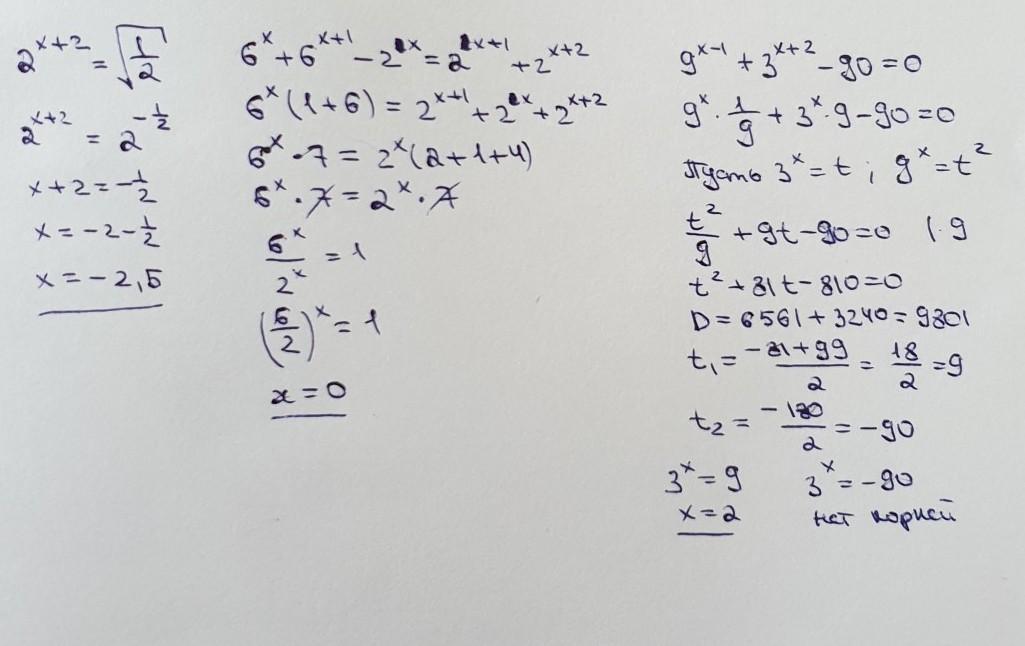 2^{x+2} = \sqrt{\frac{1}{2}}
2^{x+2} = 2^{-\frac{1}{2}}
x+2 = -\frac{1}{2}
x = -2 - \frac{1}{2}
x = -2,5
6^x + 6^{x+1} - 2^x = 2^{x+1} + 2^{x+2}
6^x (1+6) = 2^{x+1} + 2^x + 2^{x+2}
6^x · 7 = 2^x (2+1+4)
6^x · 7 = 2^x · 7
\frac{6^x}{2^x} = 1
(\frac{6}{2})^x = 1
x = 0
9^{x-1} + 3^{x+2} - 90 = 0
9^x · \frac{1}{9} + 3^x · 9 - 90 = 0
Пусть 3^x = t ; 9^x = t^2
\frac{t^2}{9} + 9t - 90 = 0 | · 9
t^2 + 81t - 810 = 0
D = 6561 + 3240 = 9801
t_1 = \frac{-81+99}{2} = \frac{18}{2} = 9
t_2 = \frac{-180}{2} = -90
3^x = 9 3^x = -90
x = 2 нет корней